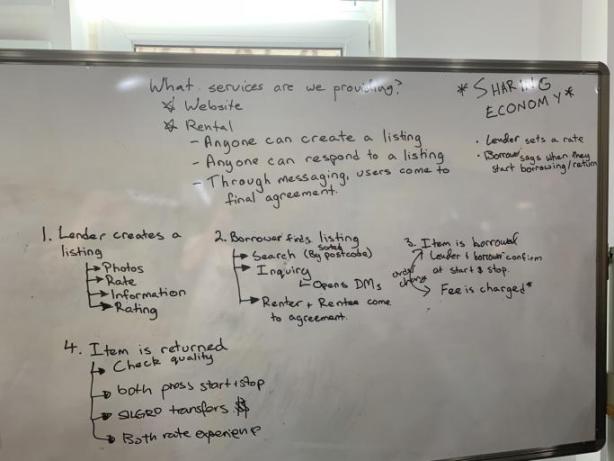 What services are we providing?
Website
Rental
- Anyone can create a listing
- Anyone can respond to a listing
- Through messaging, users come to
final agreement.
*SHARING
ECONOMY*
• Lender sets a rate
• Borrower says when they
start borrowing/return
1. Lender creates a
listing
Photos
Rate
Information
Rating
2. Borrower finds listing
Search (By postcode)
Inquiry
Opens DMs
Renter + Rentee come
to agreement.
3. Item is borrowed
Lender & borrower confirm
at start & stop.
Fee is charged*
4. Item is returned
Check quality
both press start + stop
transfers $
Both rate experience